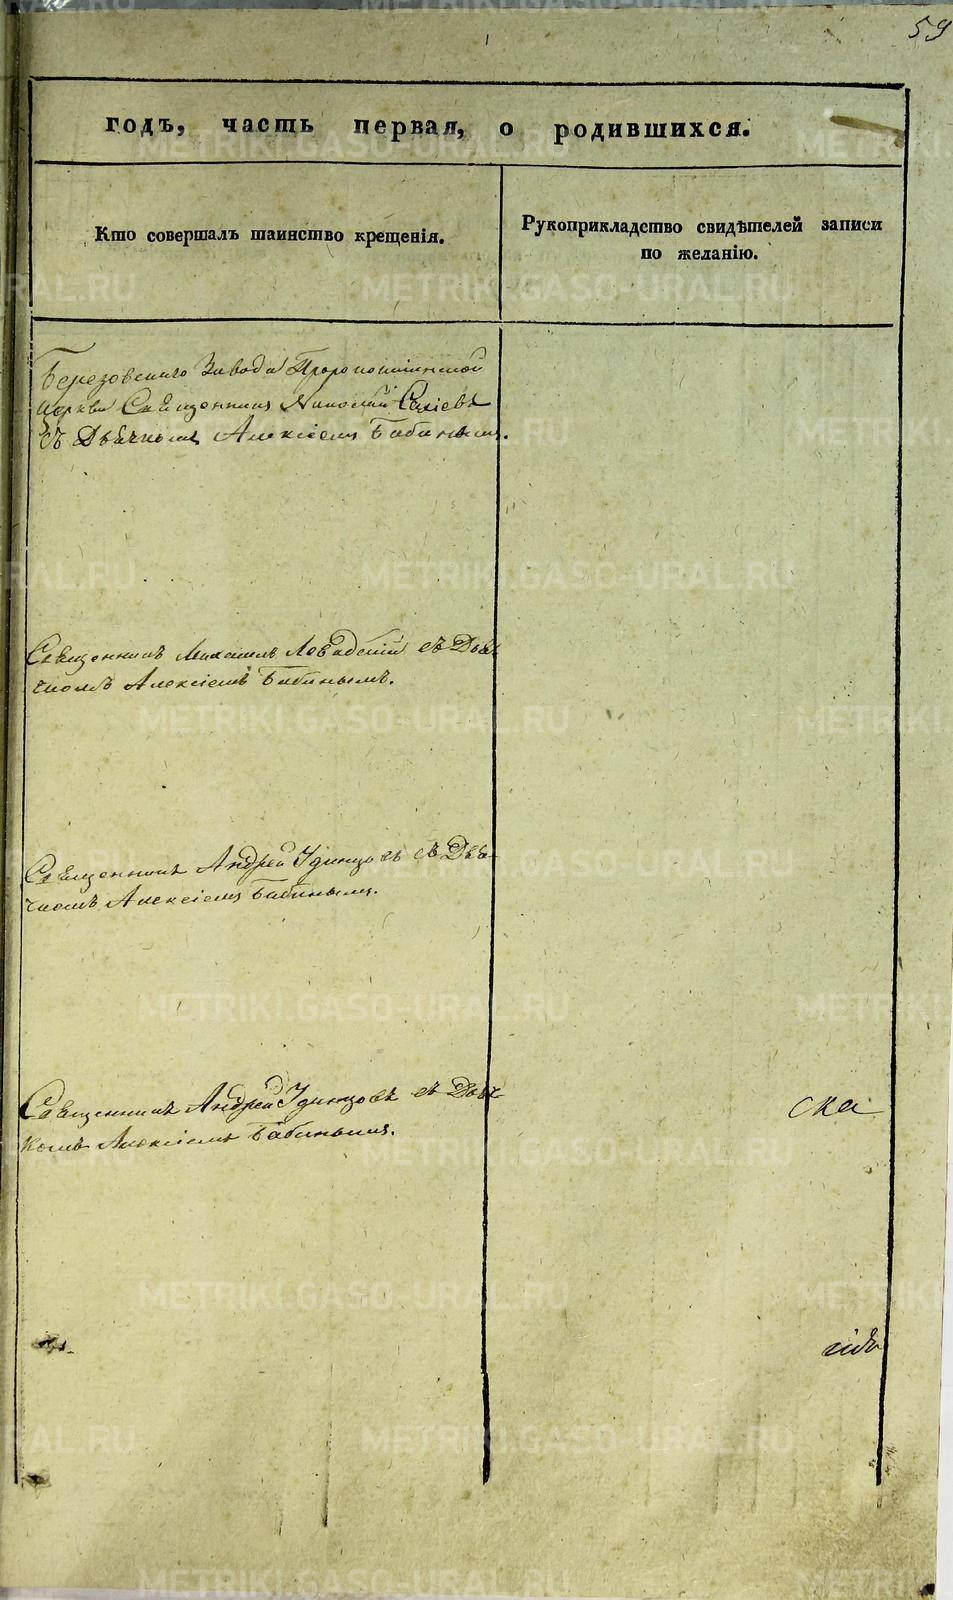 59
годъ, часть первая, о родившихся.
Кто совершалъ таинство крещенія.
Рукоприкладство свидѣтелей записи
по желанію.
Березовскаго Завода Пророкоильинской
церкви Священникъ Николай
съ Дьячкомъ Алексіемъ Бабинымъ.
Священникъ Михаилъ Левадскій съ Дья
чкомъ Алексіемъ Бабинымъ.
Священникъ Андрей Удинцовъ съ Дья
чкомъ Алексіемъ Бабинымъ.
Священникъ Андрей Удинцовъ съ Дьяч
комъ Алексіемъ Бабинымъ.
ска
METRIKI.GASO-URAL.RU